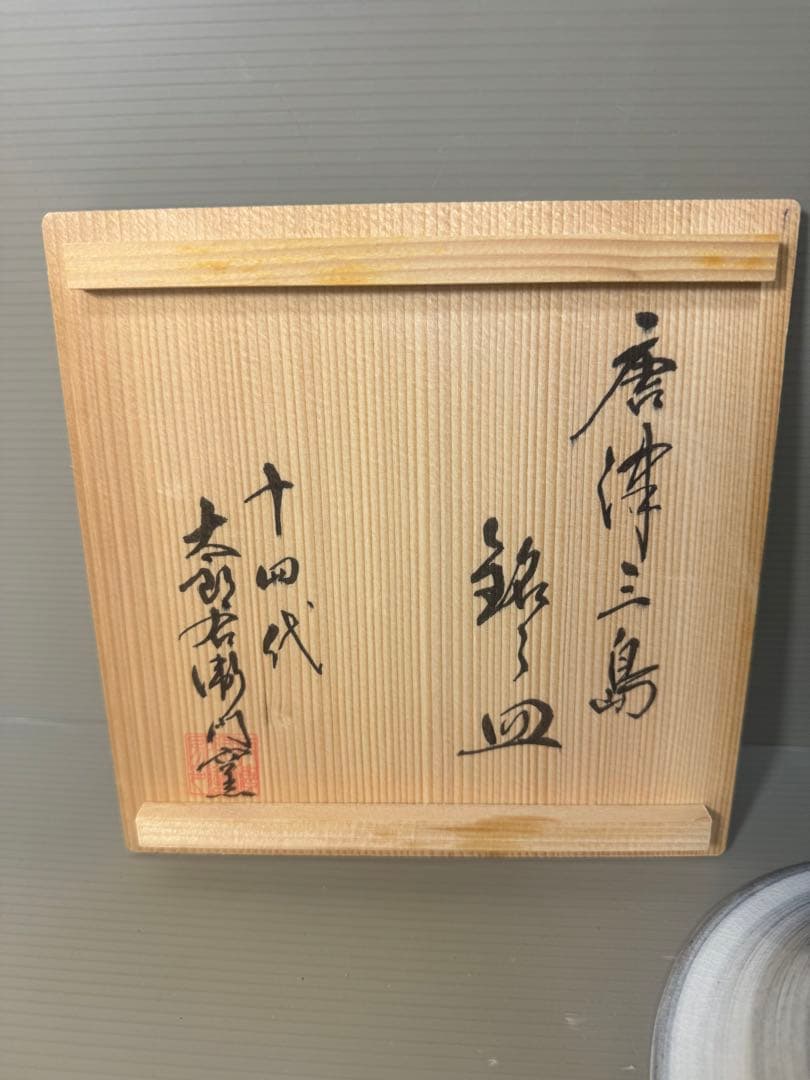 唐津三島
銘々皿
十四代
太郎右衛門窯